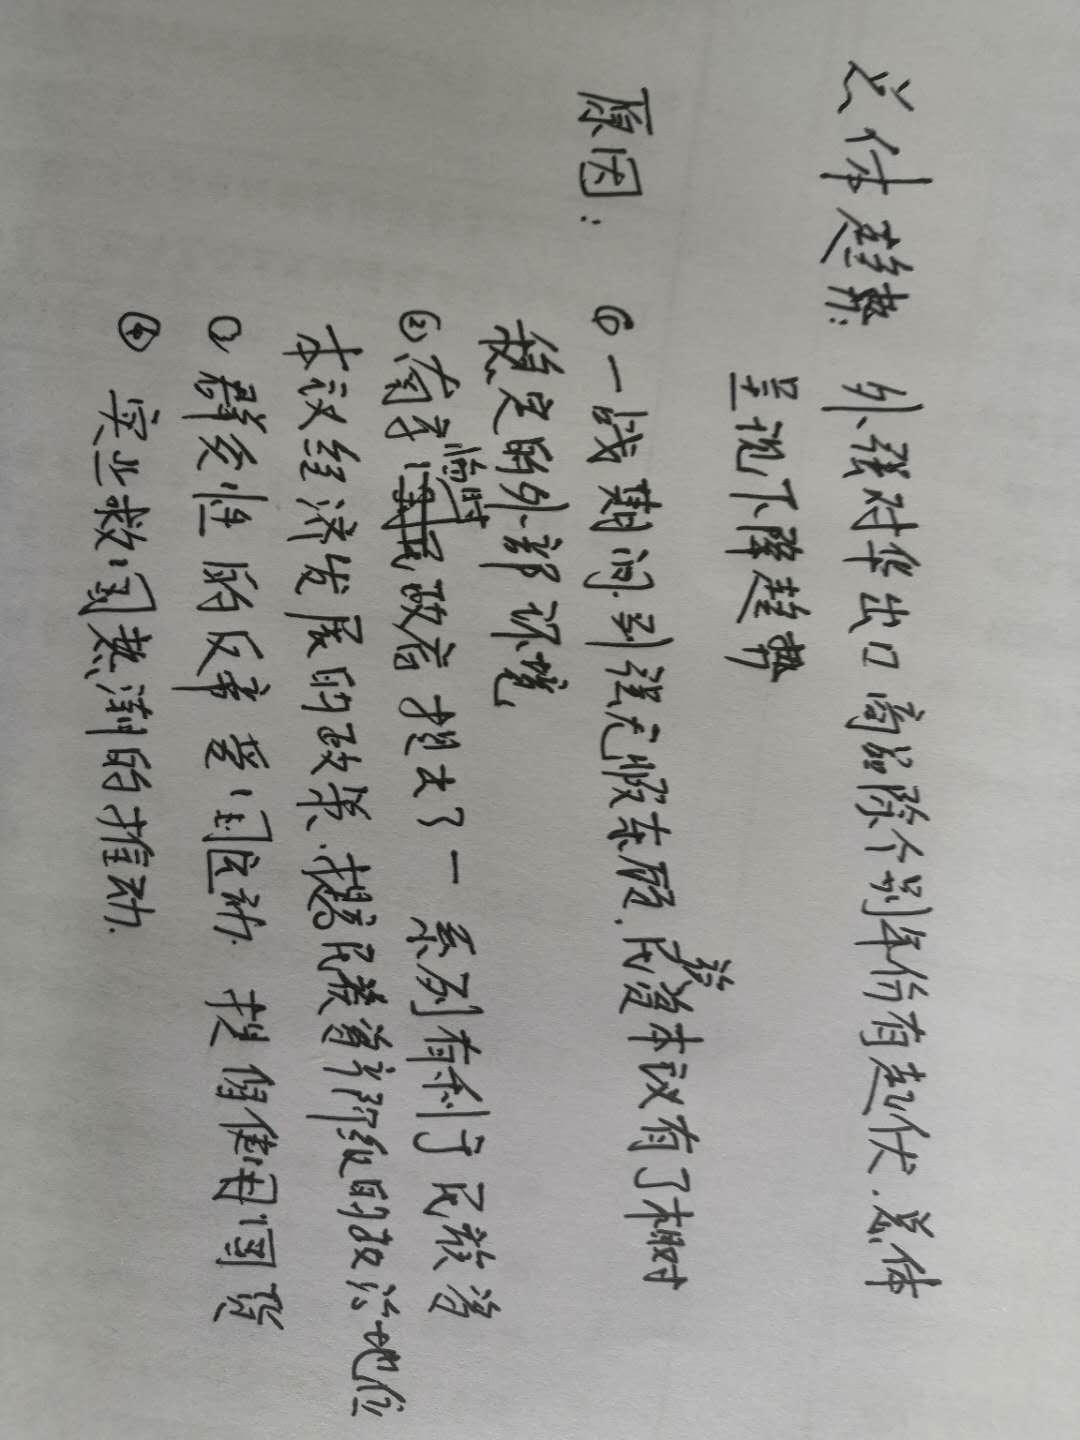 总体趋势: 外强对华出口商品除个别年份有起伏.总体
呈现下降趋势
原因:
①一战期间.列强无暇东顾.民族资本主义有了相对
稳定的外部环境
②.南京临时政府提出了一系列有利于民族资
本主义经济发展的政策.提高民族资产阶级的政治地位
③群众性的反帝爱国运动.提倡使用国货
④ 实业救国热潮的推动.